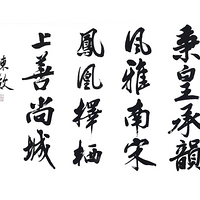 秉皇承韻
风雅南宋
鳳凰擇栖
上善尚城
東敏